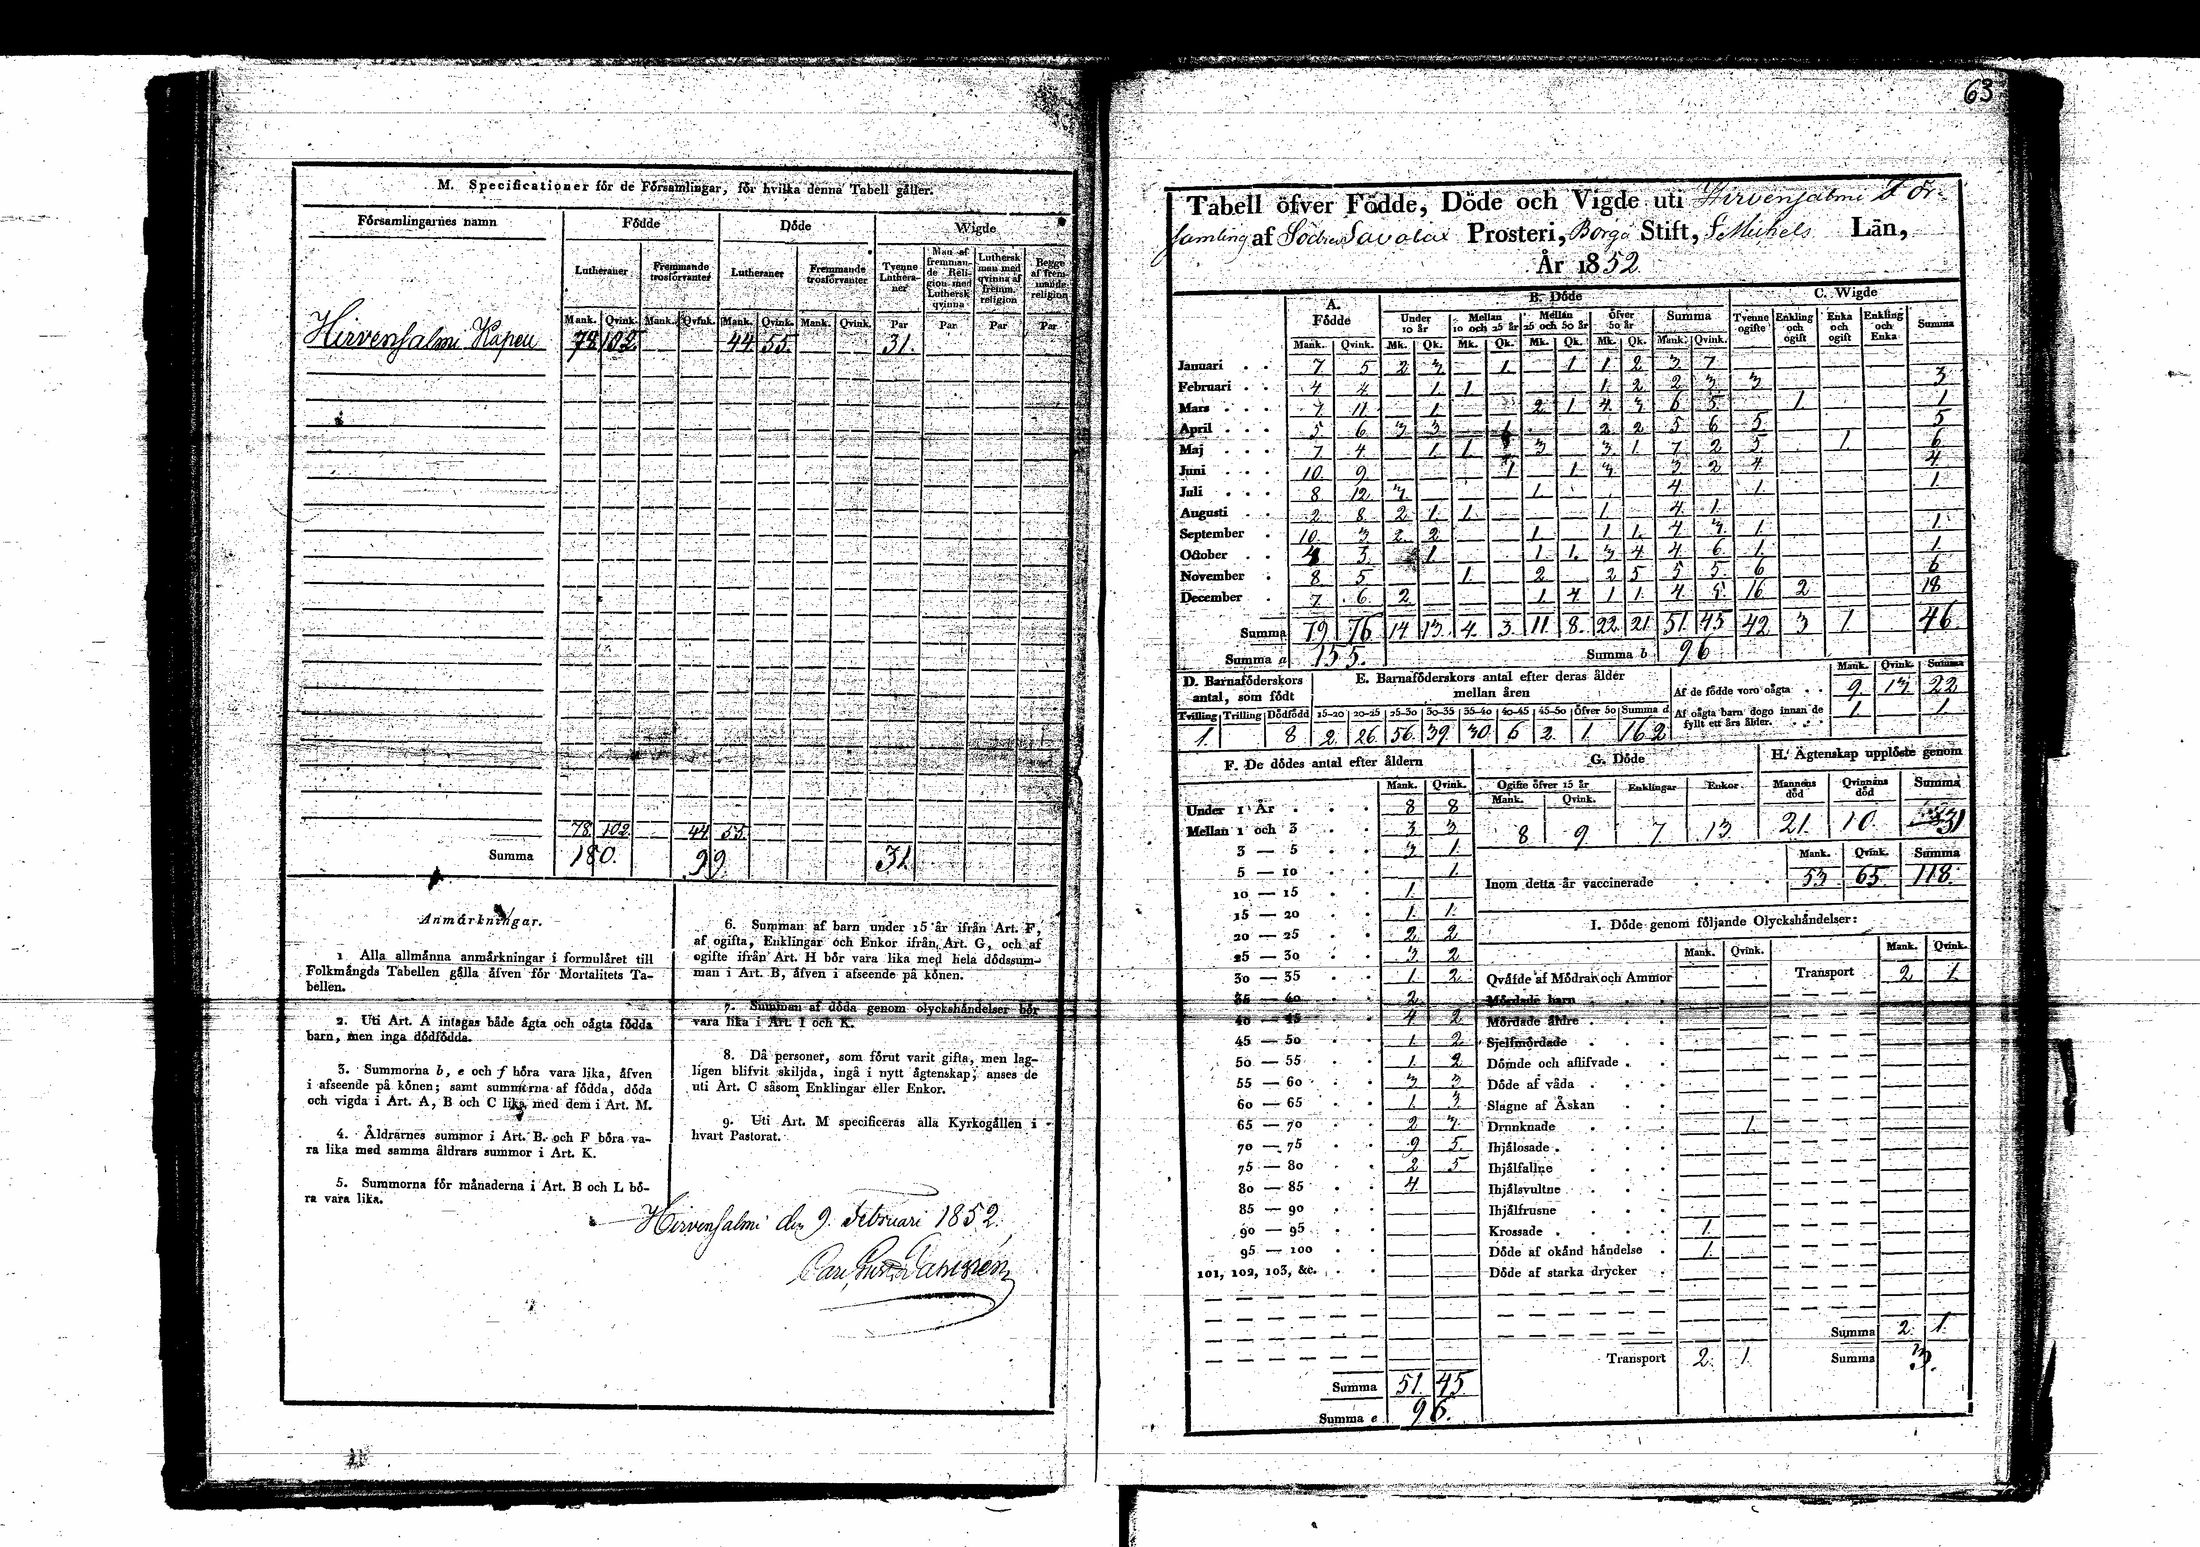 63
M. Specificationer för de Församlingar, för hvilka denna Tabell gäller.
Församlingarnes namn Födde Döde Wigde
Lutheraner Fremmande trosförvanter Lutheraner Fremmande trosförvanter Tvenne Lutheraner Man af fremmande Religion med Luthersk qvinna Luthersk man med qvinna af fremm. religion Begge af fremmande religion
Mank. Qvink. Mank. Qvink. Mank. Qvink. Mank. Qvink. Par Par Par Par
Hirvensalmi Kapell 78 102 44 55 31.
78 102 44 55
Summa 180. 99 31.
Anmärkningar.
1. Alla allmänna anmärkningar i formuläret till
Folkmängds Tabellen gälla äfven för Mortalitets Ta-
bellen.
2. Uti Art. A intagas både ägta och oägta födda
barn, men inga dödfödda.
3. Summorna b, e och f böra vara lika, äfven
i afseende på könen; samt summorna af födda, döda
och vigda i Art. A, B och C lika med dem i Art. M.
4. Åldrarnes summor i Art. B. och F böra va-
ra lika med samma åldrars summor i Art. K.
5. Summorna för månaderna i Art. B och L bö-
ra vara lika.
6. Summan af barn under 15 år ifrån Art. F,
af ogifta, Enklingar och Enkor ifrån Art. G, och af
ogifte ifrån Art. H bör vara lika med hela dödssum-
man i Art. B, äfven i afseende på könen.
7. Summan af döda genom olyckshändelser bör
vara lika i Art. I och K.
8. Då personer, som förut varit gifta, men lag-
ligen blifvit skiljda, ingå i nytt ägtenskap, anses de
uti Art. C såsom Enklingar eller Enkor.
9. Uti Art. M specificeras alla Kyrkogällen i
hvart Pastorat.
Hirvensalmi den 9. Februari 1852.
Tabell öfver Födde, Döde och Vigde uti Hirvensalmi För-
samling af Södra Savolax Prosteri, Borgå Stift, S:t Michels Län,
År 1852
A. Födde B. Döde C. Wigde
Under 10 år Mellan 10 och 25 år Mellan 25 och 50 år Öfver 50 år Summa Tvenne ogifte Enkling och ogift Enka och ogift Enkling och Enka Summa
Mank. Qvink. Mk. Qk. Mk. Qk. Mk. Qk. Mk. Qk. Mank. Qvink.
Januari 7 5 2 3 1 1 1 2 3 7
Februari 4 4 1 1 1 2 2 3 3 3
Mars 7 11 1 2 1 4 3 6 5 1 1
April 5 6 3 3 1 2 2 5 6 5 5
Maj 7 4 1 1 3 3 1 7 2 5 1 6
Juni 10 9 1 1 3 3 2 4 4
Juli 8 12 3 1 4 1 1
Augusti 2 8 2 1 1 1 4 1
September 10 3 2 2 1 1 1 4 3 1 1
October 4 3 1 1 1 3 4 4 6 1 1
November 8 5 1 2 2 5 5 5 6 6
December 7 6 2 1 4 1 1 4 5 16 2 18
Summa 79 76 14 13 4 3 11 8 22 21 51 45 42 3 1 46
Summa a 155. Summa b 96
D. Barnaföderskors antal, som födt
E. Barnaföderskors antal efter deras ålder mellan åren
Mank. Qvink. Summa
Tvilling Trilling Dödfödd 15-20 20-25 25-30 30-35 35-40 40-45 45-50 Öfver 50 Summa d
1. 8 2 26 56 39 30 6 2 1 162
Af de födde voro oägta 9 13 22
Af oägta barn dogo innan de fyllt ett års ålder. 1 1
F. De dödes antal efter åldern
Mank. Qvink.
Under 1 År 8 8
Mellan 1 och 3 3 3
3 — 5 3 1
5 — 10 1
10 — 15 1
15 — 20 1 1
20 — 25 2 2
25 — 30 3 2
30 — 35 1 2
35 — 40 2
40 — 45 4 2
45 — 50 1 2
50 — 55 1 2
55 — 60 3 3
60 — 65 1 3
65 — 70 2 3
70 — 75 9 5
75 — 80 2 5
80 — 85 4
85 — 90
90 — 95
95 — 100
101, 102, 103, &c.
Summa 51 45
Summa e 96.
G. Döde
Ogifte öfver 15 år Enklingar Enkor
Mank. Qvink.
8 9 7 13
H. Ägtenskap upplöste genom
Mannens död Qvinnans död Summa
21. 10. 31
Mank. Qvink. Summa
Inom detta år vaccinerade 53 65 118
I. Döde genom följande Olyckshändelser:
Mank. Qvink. Mank. Qvink.
Qväfde af Mödrar och Ammor Transport 2 1
Mördade barn
Mördade äldre
Sjelfmördade
Dömde och aflifvade
Döde af våda
Slagne af Åskan
Drunknade 1
Ihjälosade
Ihjälfallne
Ihjälsvultne
Ihjälfrusne
Krossade 1
Döde af okänd händelse 1
Döde af starka drycker
Summa 2. 1.
Transport 2. 1. Summa 3.